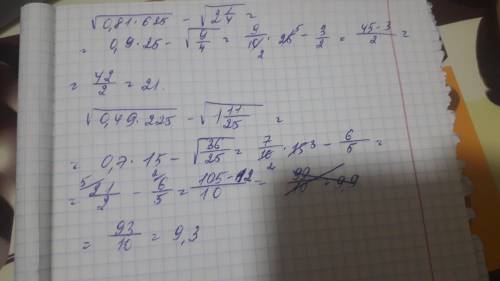 √0,81·625 − √2 1/4 =
= 0,9·25 − √9/4 = 9/10 2 · 25 5 − 3/2 = 45-3/2 =
= 42/2 = 21.
√0,49·225 − √1 11/25 =
= 0,7·15 − √36/25 = 7/10 2 · 15 3 − 6/5 =
= 5 21/2 − 2 6/5 = 105-12/10 =
= 93/10 = 9,3